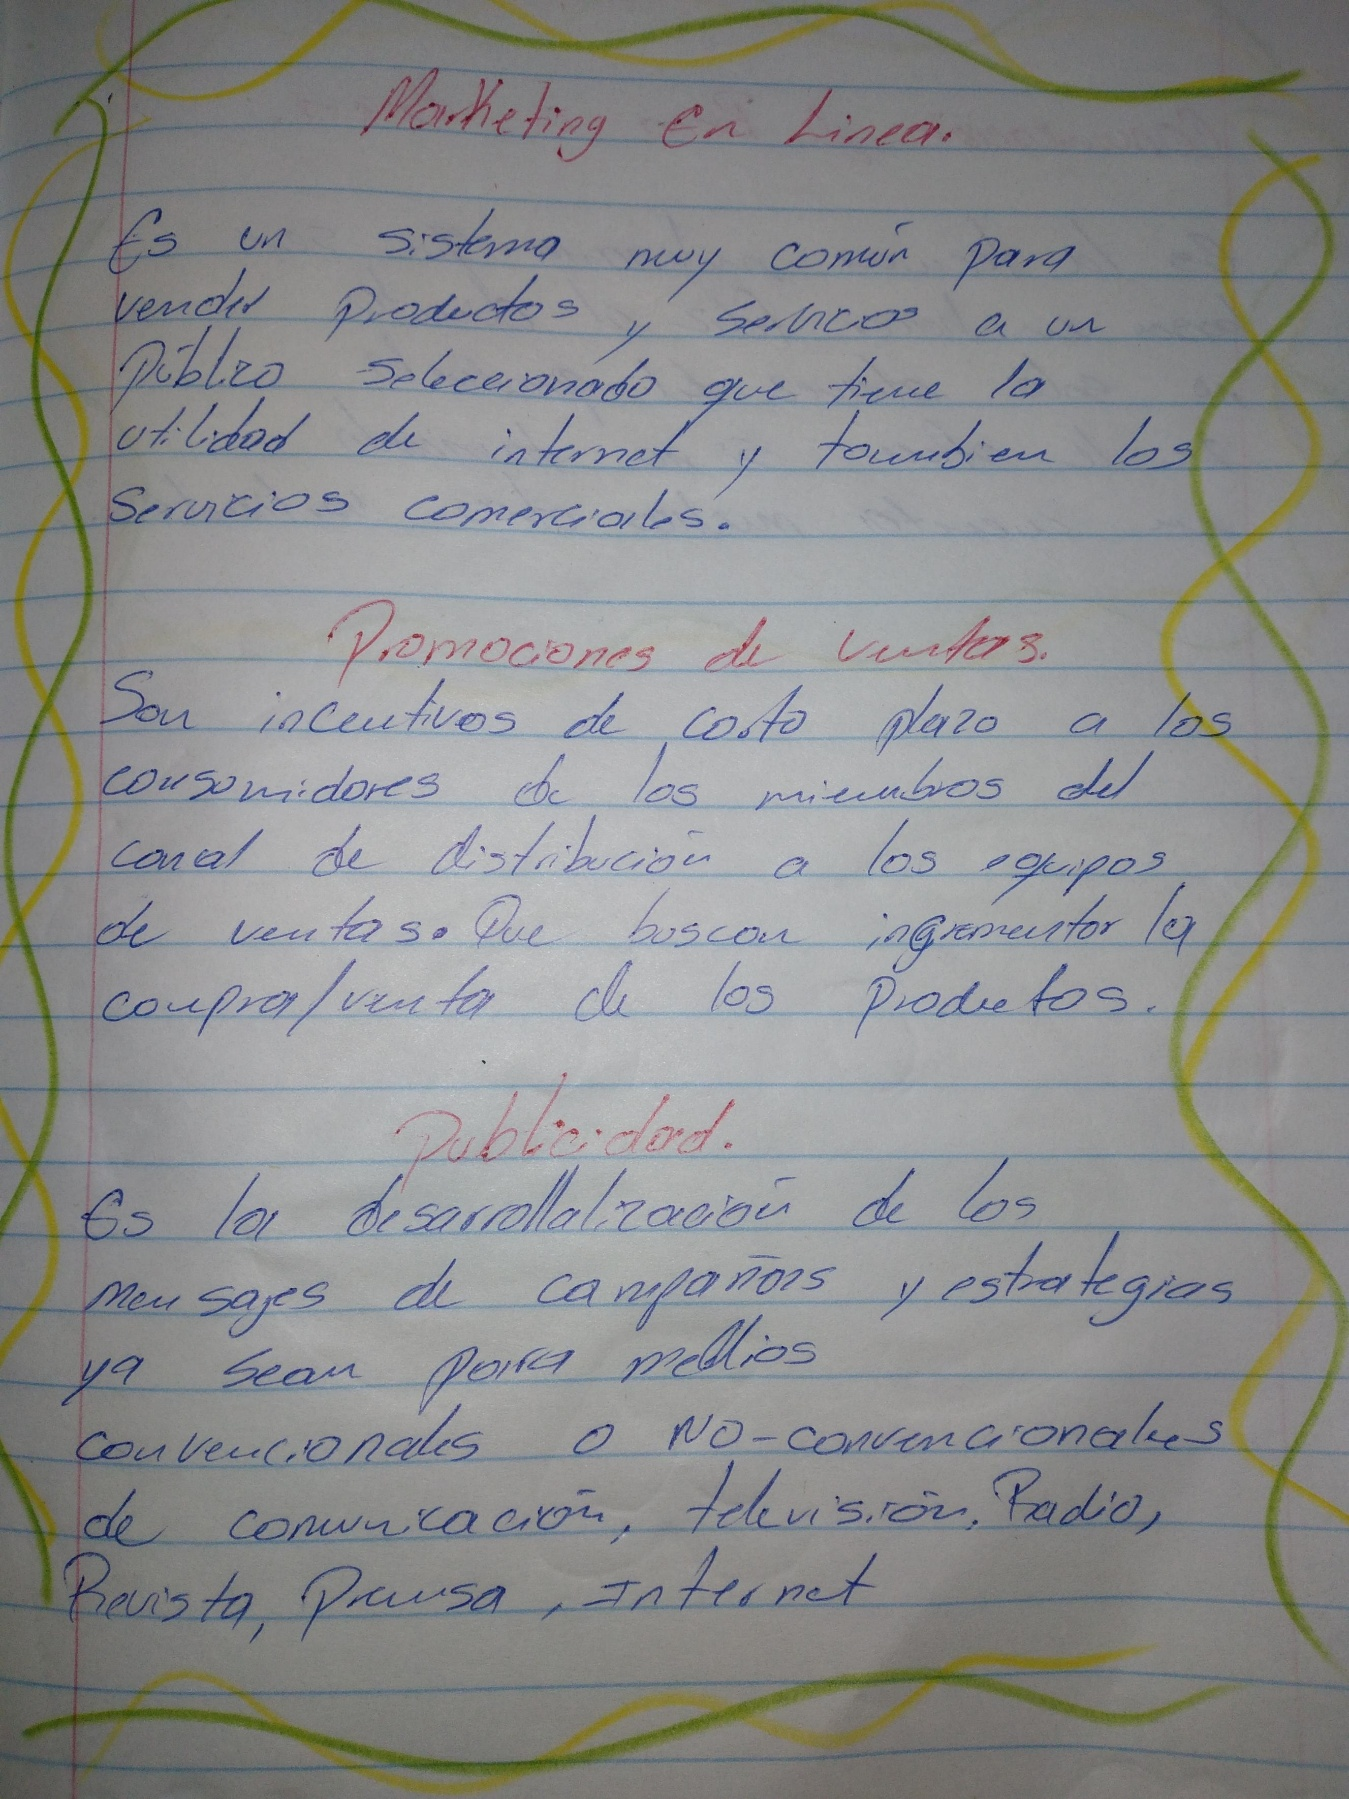 Marketing En Linea.
Es un sistema muy común para
vender Productos y Servicos a un
Público Seleccionado que tiene la
utilidad de internet y tambien los
Servicios comerciales.
Promociones de Ventas.
Son incentivos de corto plazo a los
consumidores de los miembros del
canal de distribución a los equipos
de ventas. Que buscan ingrementar la
compra/venta de los Productos.
Publicidad.
Es la desarrollalización de los
mensajes de campañas y estrategias
ya sean para medios
convencionales o NO-convencionales
de comunicación, televisión, Radio,
Revista, Prensa, Internet